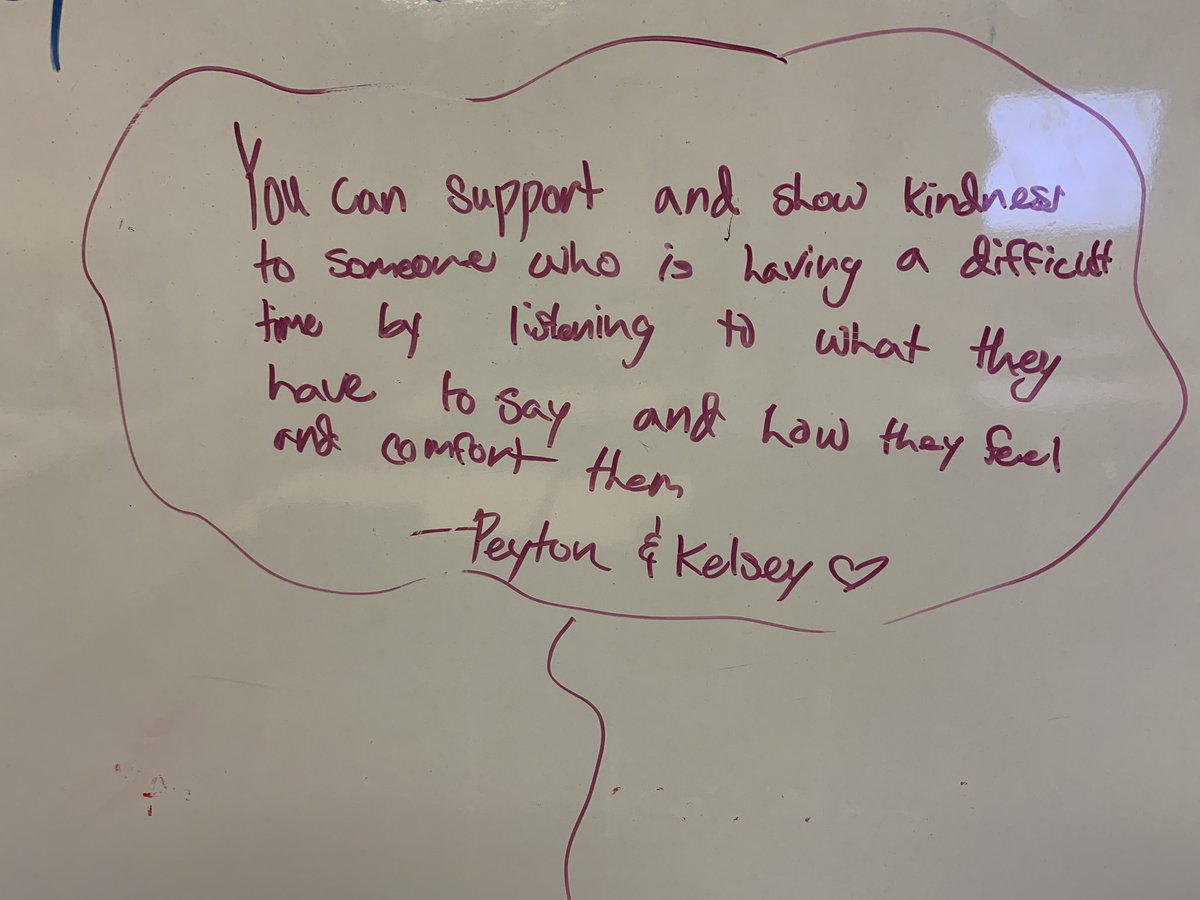 You can support and show kindness
to someone who is having a difficult
time by listening to what they
have to say and how they feel
and comfort them
—Peyton & Kelsey ♡